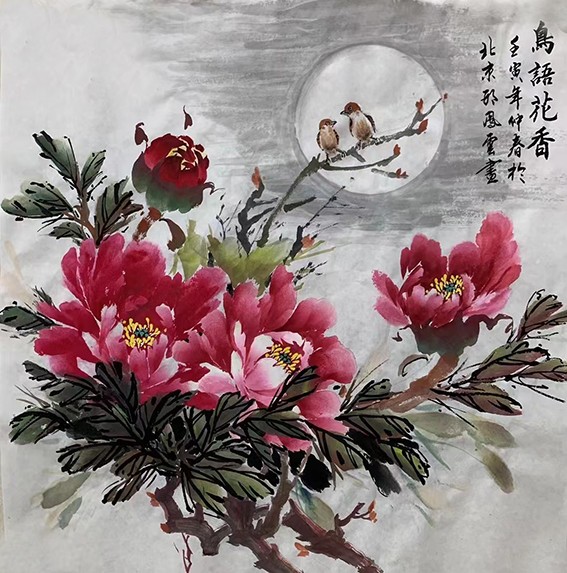 鳥語花香
壬寅年仲春於
北京邢鳳雲畫